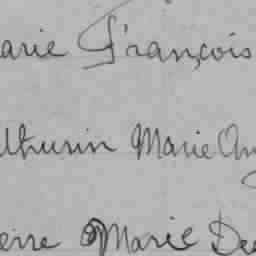 arie François
thurin Marie An
erre Marie De